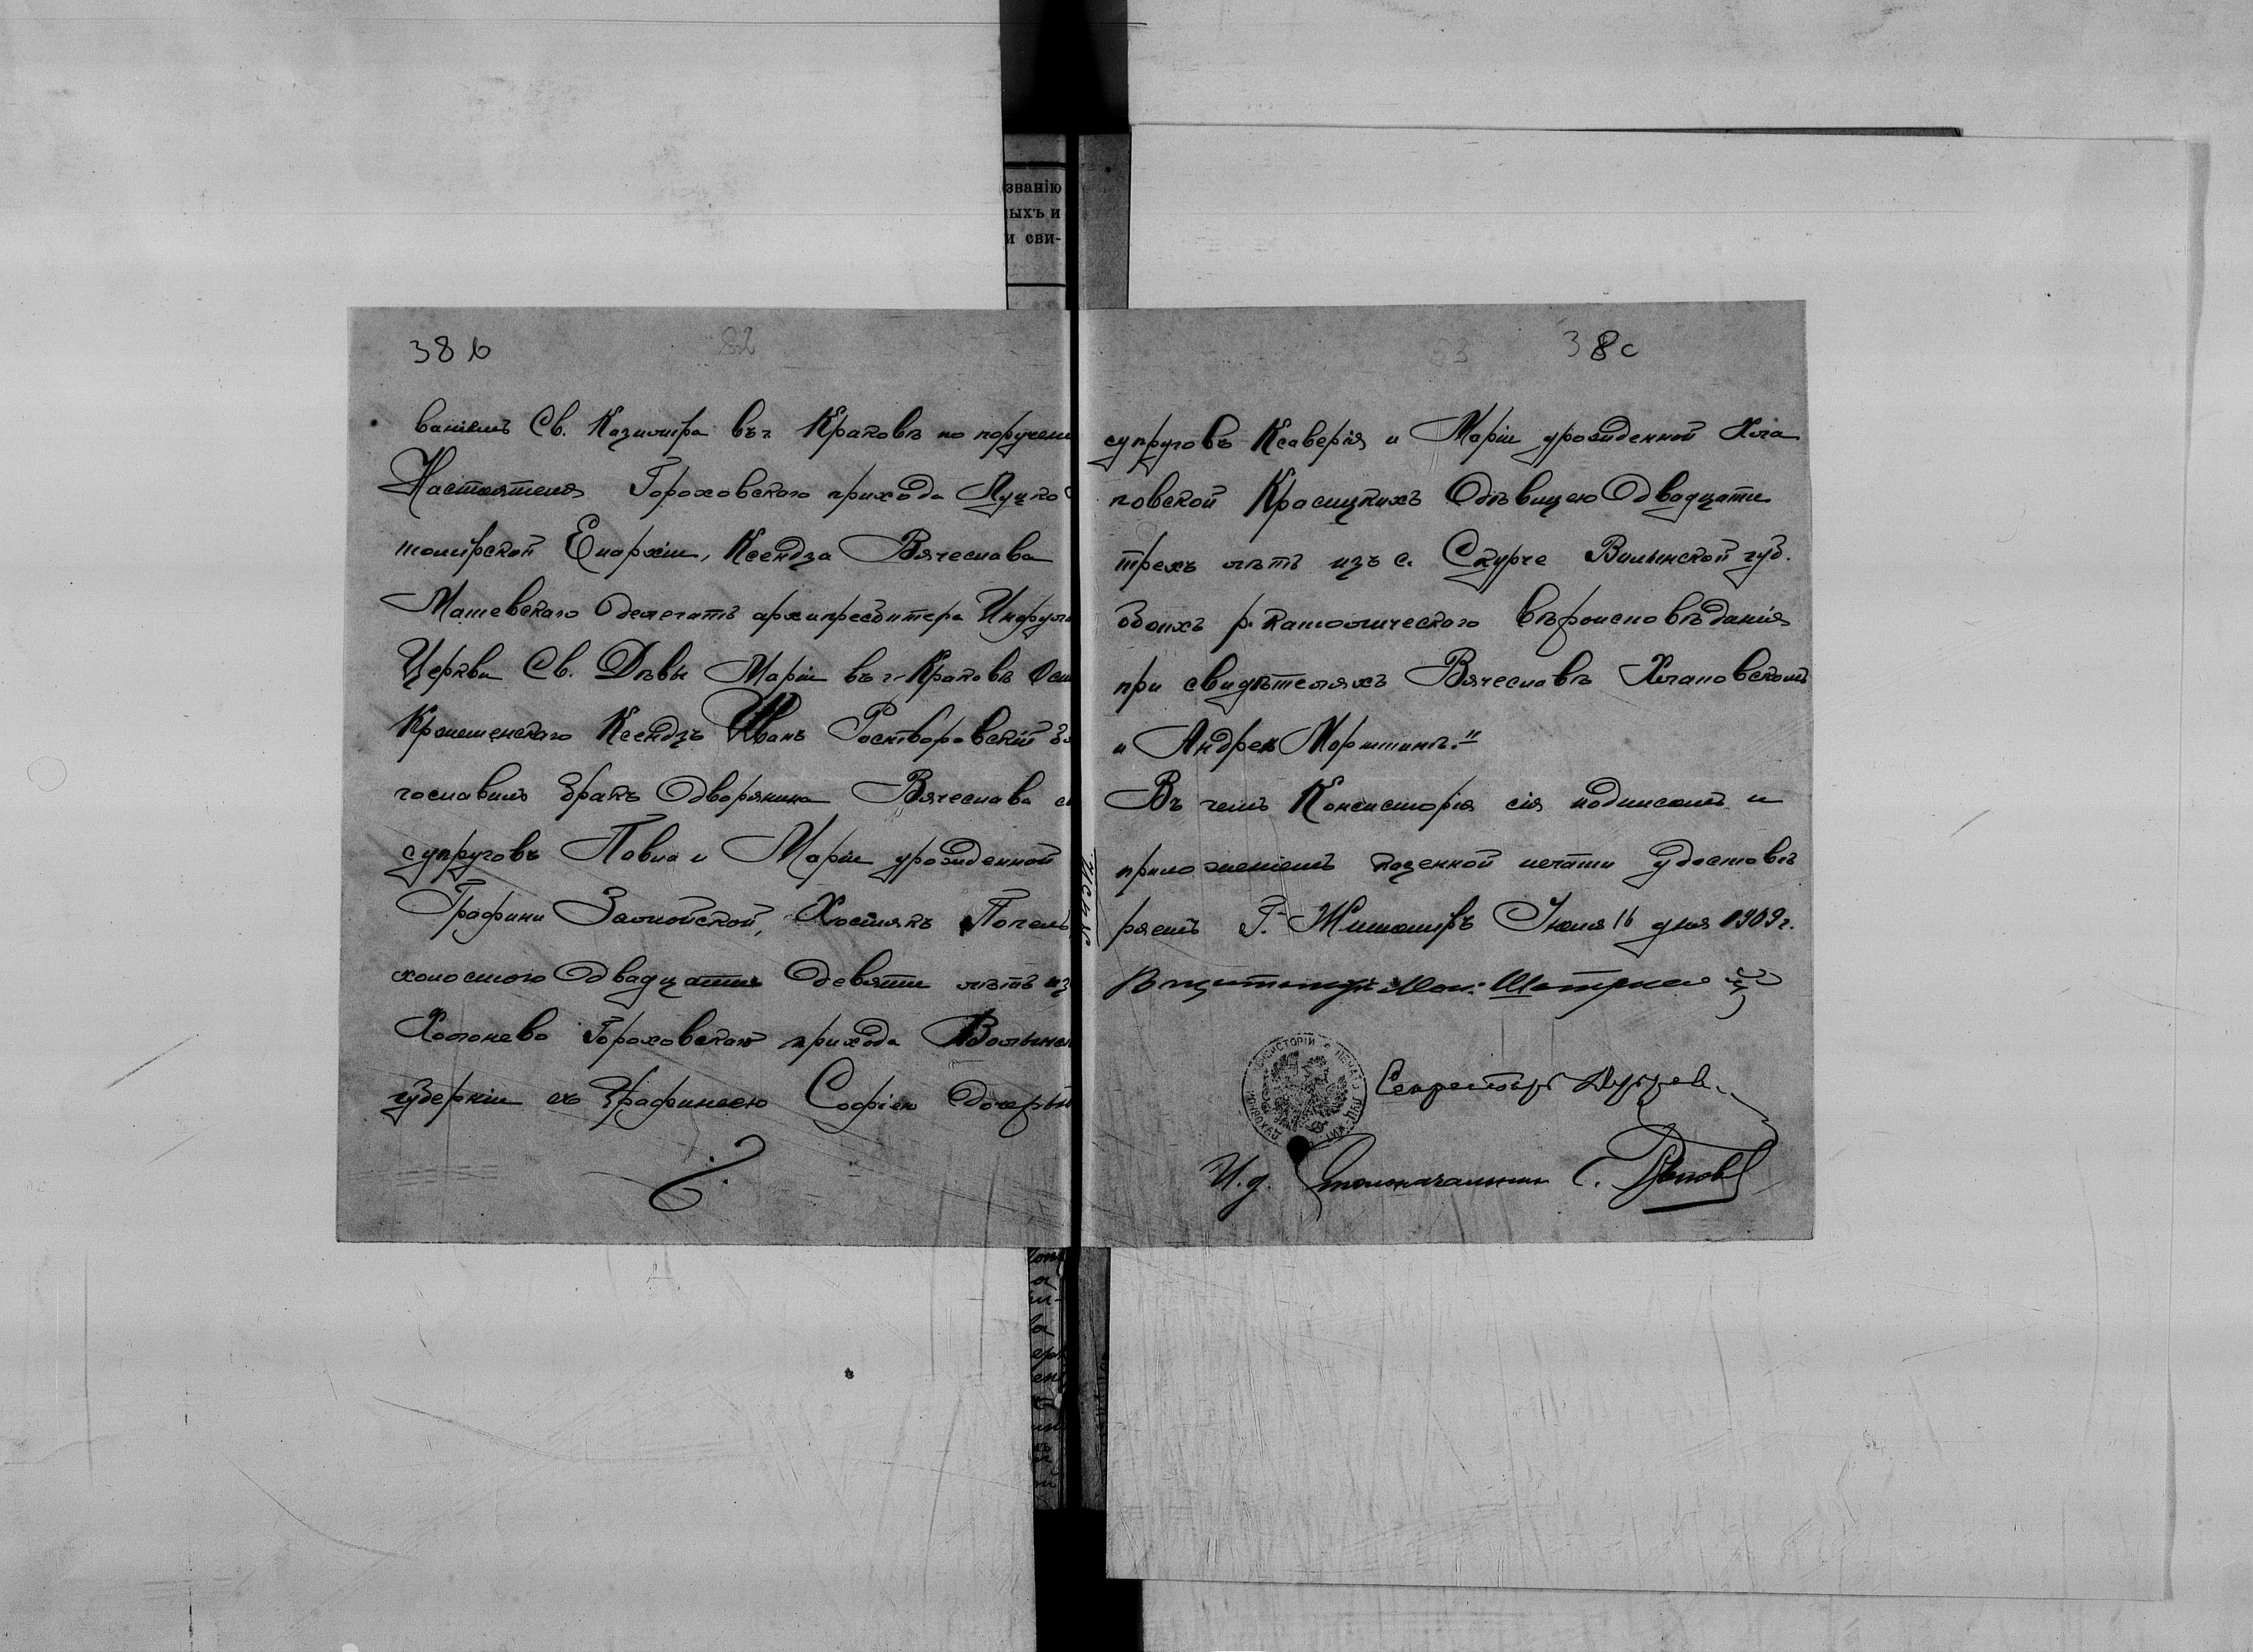 званію
ыхъ и
и сви-
38 b
82
ваніемъ Св. Казимира въ г. Краковѣ по поручен
Настоятеля Гороховского прихода Луцко
томирской Епархіи, Ксендза Вячеслава
Машевскаго делегатъ архипресвитера Инфула
Церкви Св. Дѣвы Маріи въ г. Краковѣ
Кршеменскаго Ксендзъ Иванъ Ростворовскій
гословилъ бракъ дворянина Вячеслава
супруговъ Павла и Маріи урожденной
Графини Замойской, Хостякъ Попель
холостого двадцати девяти лѣтъ из
Холонева Гороховскаго прихода Волынск
губерніи съ Графинею Софіею дочерью
38 c
супруговъ Ксаверія и Маріи урожденной Хла
повской Красицкихъ дѣвицею двадцати
трехъ лѣтъ изъ с. Скурче Волынской губ.
обоихъ р. католическаго вѣроисповѣданія
при свидѣтеляхъ Вячеславѣ Хлаповскомъ
и Андреѣ Морштинѣ."
Въ чемъ Консисторія сія подписомъ и
приложеніемъ казенной печати удостовѣ
ряетъ Г. Житоміръ Іюля 16 дня 1909 г.
Секретарь
И. д. Столоначальника С.